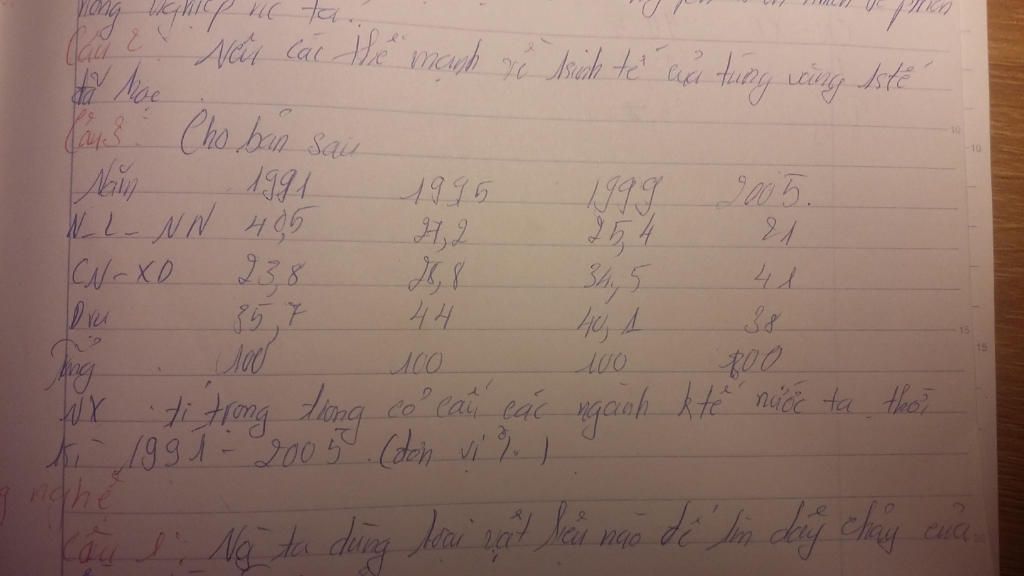 nông nghiệp nc ta.
Câu 2 Nêu các thế mạnh về kinh tế của từng vùng ktế
đã học
Câu 3: Cho bản sau
Năm 1991 1995 1999 2005.
N-L-NN 40,5 27,2 25,4 21
CN-XD 23,8 28,8 34,5 41
Dvu 35,7 44 40,1 38
Tổng 100 100 100 100
NX tỉ trọng trong cơ cấu các ngành ktế nước ta thời
kì 1991 - 2005 (đơn vị %)
nghệ
Câu 1: Ng ta dùng loại vật liệu nào để làm dây chảy của